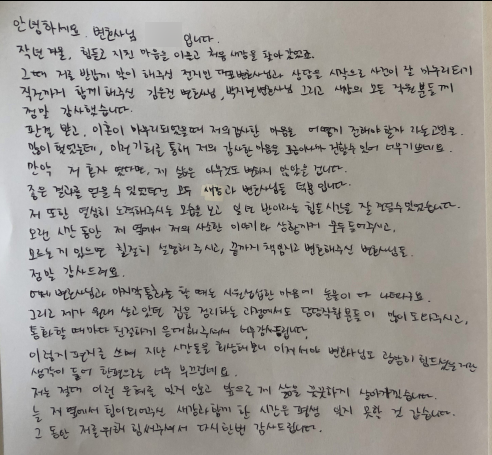 안녕하세요. 변호사님 입니다.
작년 겨울, 힘들고 지친 마음을 이끌고 처음 새강을 찾아갔었죠.
그때 저를 반갑게 맞이해주신 전지민 대표변호사님과 상담을 시작으로 사건이 잘 마무리되기
직전까지 함께 해주신 김은진 변호사님, 박지현변호사님 그리고 새강의 모든 직원분들께
정말 감사했습니다.
판결 받고, 이혼이 마무리되었을때 저의 감사한 마음을 어떻게 전해야 할까 라는 고민을
많이 했었는데, 이런 기회를 통해 저의 감사한 마음을 조금이나마 전할 수 있어 너무 기쁘네요.
만약 저 혼자 였다면, 제 삶은 아무것도 변하지 않았을 겁니다.
좋은 결과를 얻을 수 있었던건 모두 새강과 변호사님들 덕분 입니다.
저 또한 열심히 노력해주시는 모습을 보고 일년 반이라는 힘든 시간을 잘 견딜수있었습니다.
오랜 시간 동안 제 옆에서 저의 사소한 이야기와 상황까지 모두 들어주시고,
모르는게 있으면 친절히 설명해 주시고, 끝까지 책임지고 변호해주신 변호사님들
정말 감사드려요.
어제 변호사님과 마지막통화를 할 때는 시원섭섭한 마음에 눈물이 다 나더라구요.
그리고 제가 원래 살고있던 집을 정리하는 과정에서도 담당직원분들이 많이 도와주시고,
통화할 때마다 친절하게 응대해주셔서 너무 감사드립니다.
이렇게 편지를 쓰며 지난 시간들을 회상해보니 이제서야 변호사님도 굉장히 힘드셨을거란
생각이 들어 한편으로는 너무 부끄럽네요.
저는 절대 이런 은혜를 잊지 않고 앞으로 제 삶을 꿋꿋하게 살아가겠습니다.
늘 저 옆에서 힘이되어주신 새강과 함께 한 시간은 평생 잊지 못할 것 같습니다.
그 동안 저를위해 힘써주셔서 다시한번 감사드립니다.